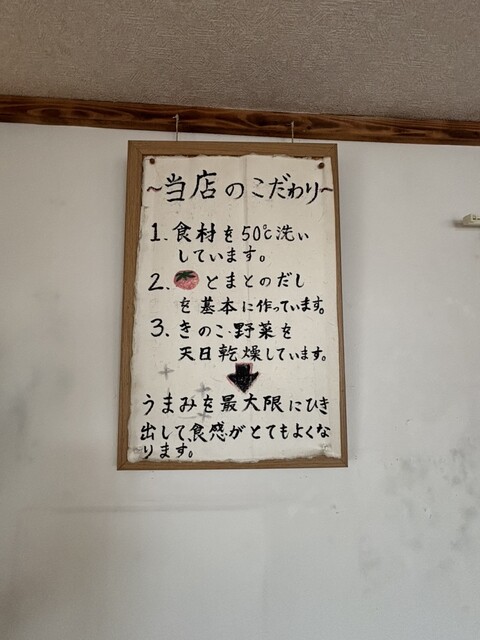 ~当店のこだわり~
1. 食材を50℃洗い
しています。
2. とまとのだし
を基本に作っています。
3. きのこ・野菜を
天日乾燥しています。
うまみを最大限にひき
出して、食感がとてもよくな
ります。